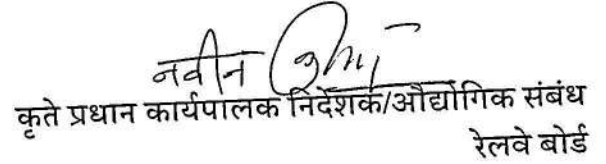 नवीन
कृते प्रधान कार्यपालक निर्देशक/औद्योगिक संबंध
रेलवे बोर्ड